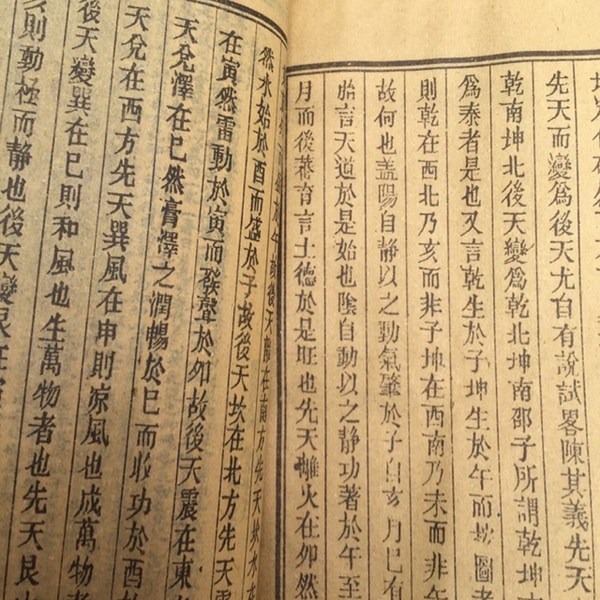 先天而變爲後天尤自有說試畧陳其義先天
乾南坤北後天變爲乾北坤南邵子所謂乾坤
爲泰者是也又言乾生於子坤生於午而按圖者
則乾在西北乃亥而非子坤在西南乃未而非午
故何也蓋陽自靜以之動氣肇於子自亥月巳有
始言天道於是始也陰自動以之静功著於午至
月而後蕃育言土德於是旺也先天離火在卯然
後天離在南方先天坎水在
然水始於酉而盛於子故後天坎在北方先天震
在寅然雷動於寅而發聲於卯故後天震在東
天兌澤在巳然膏澤之潤暢於巳而收功於酉
天兌在西方先天巽風在申則凉風也成萬物
後天變巽在巳則和風也生萬物者也先天艮山
則動極而静也後天變艮在寅